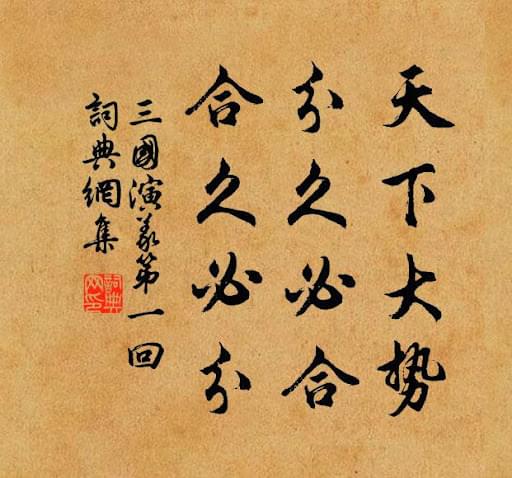 天下大勢
分久必合
合久必分
三國演義第一回
詞典網集
詞典網印